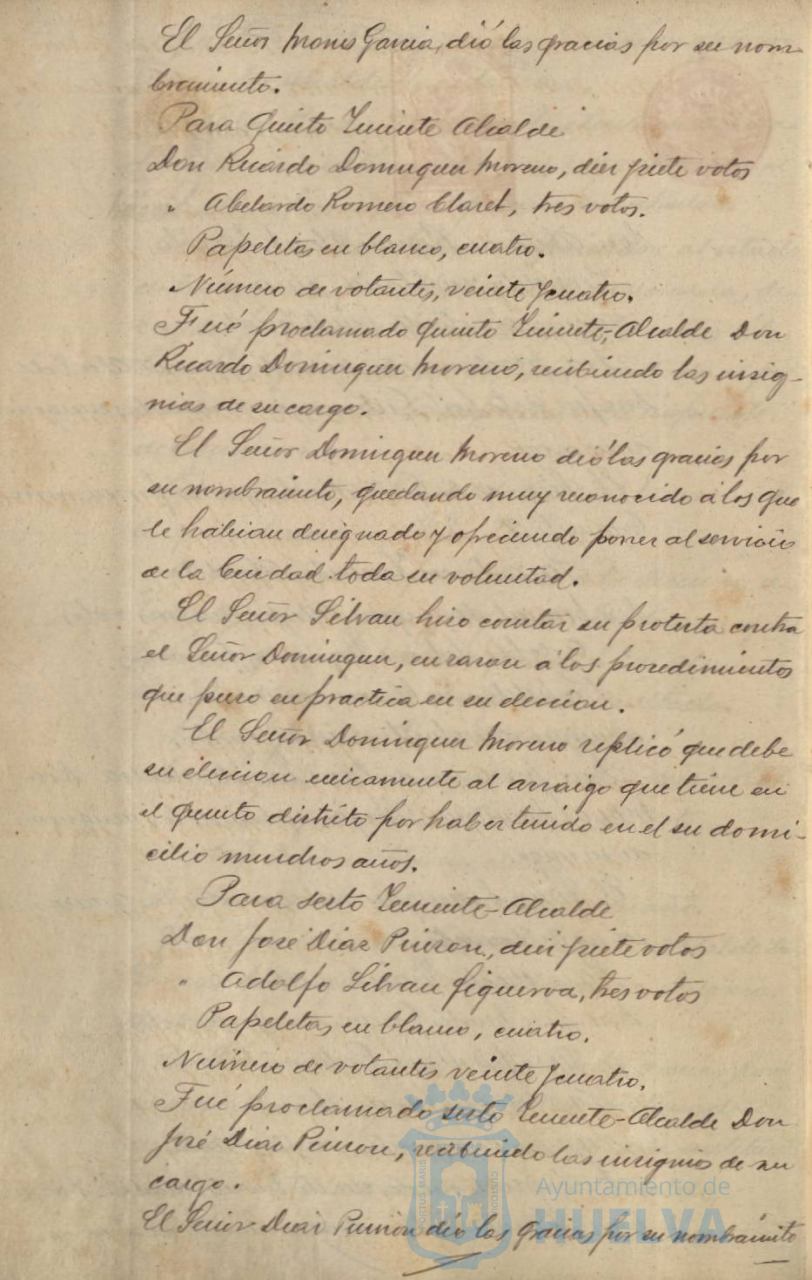 El Señor Mones Garcia, dió las gracias por su nom-
bramiento.
Para Quinto Teniente Alcalde
Don Ricardo Dominguez Moreno, diez y siete votos
" Abelardo Romero Claret, tres votos.
Papeletas en blanco, cuatro.
Número de votantes, veinte y cuatro.
Fué proclamado Quinto Teniente-Alcalde Don
Ricardo Dominguez Moreno, recibiendo las insig-
nias de su cargo.
El Señor Dominguez Moreno dió las gracias por
su nombramiento, quedando muy reconocido á los que
le habian designado y ofreciendo poner al servicio
de la Ciudad toda su voluntad.
El Señor Silvan hizo constar su protesta contra
el Señor Dominguez, en razon á los procedimientos
que puso en practica en su eleccion.
El Señor Dominguez Moreno replicó que debe
su eleccion unicamente al arraigo que tiene en
el quinto distrito por haber tenido en el su domi-
cilio muchos años.
Para sesto Teniente-Alcalde
Don José Diaz Pinzon, diez y siete votos
" Adolfo Silvan Figueroa, tres votos
Papeletas en blanco, cuatro.
Número de votantes veinte y cuatro.
Fué proclamado sesto Teniente-Alcalde Don
José Diaz Pinzon, recibiendo las insignias de su
cargo.
El Señor Diaz Pinzon dió las gracias por su nombramiento
Ayuntamiento de
HUELVA